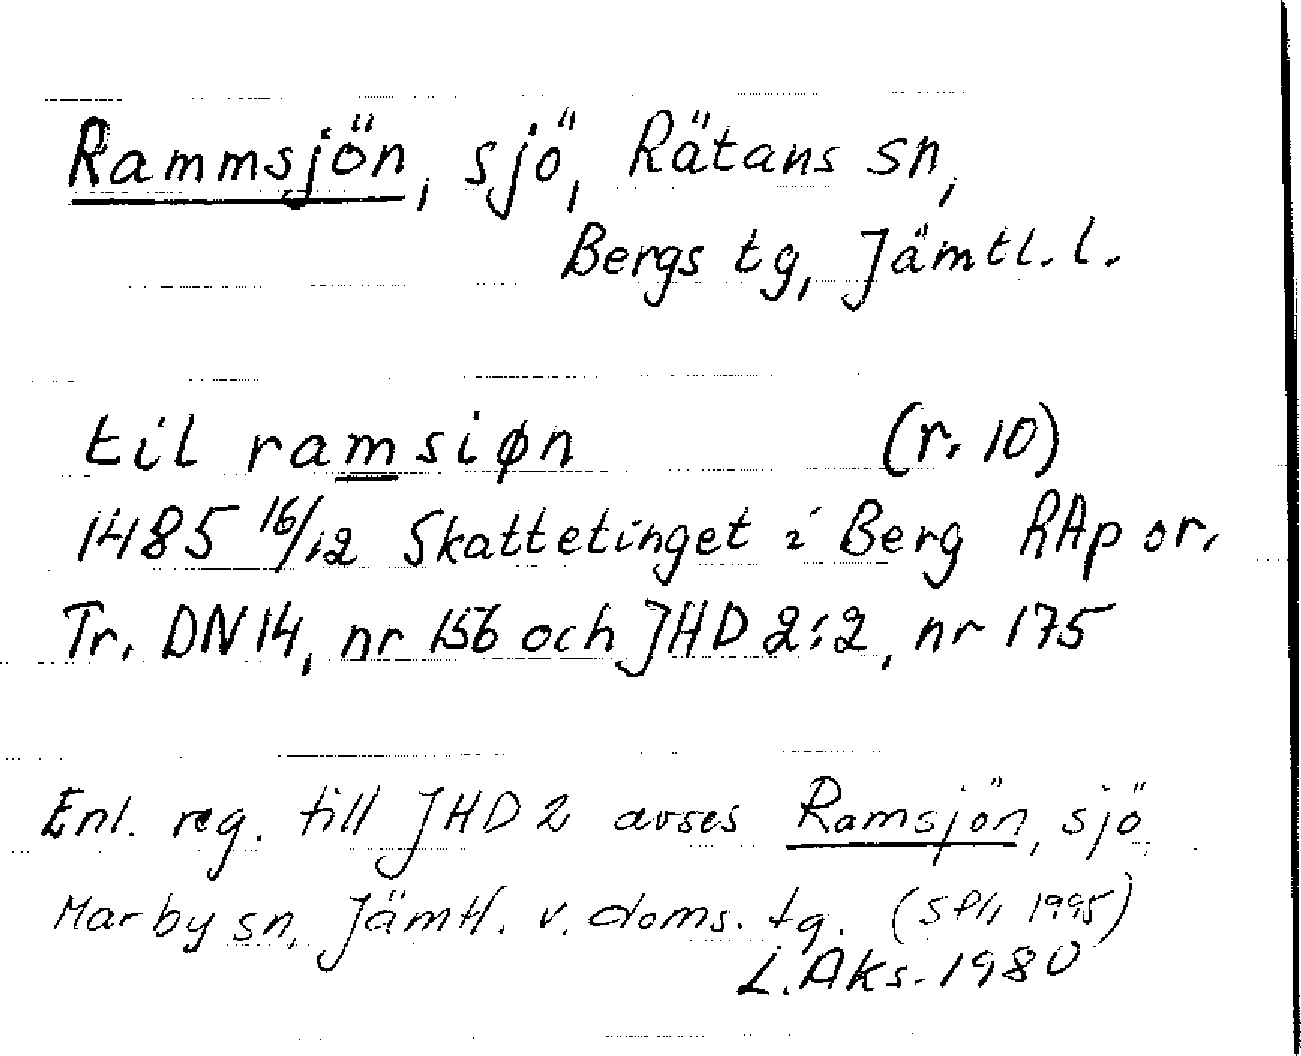 Rammsjön, sjö, Rätans sn,
Bergs tg, Jämtl. l.
til ramsiøn (r. 10)
1485 16/12 Skattetinget i Berg RAp or.
Tr. DN 14, nr 156 och JHD 2:2, nr 175
Enl. reg. till JHD 2 avses Ramsjön, sjö,
Marby sn, Jämtl. v. doms. tg. ( 1995)
L. Aks. 1980